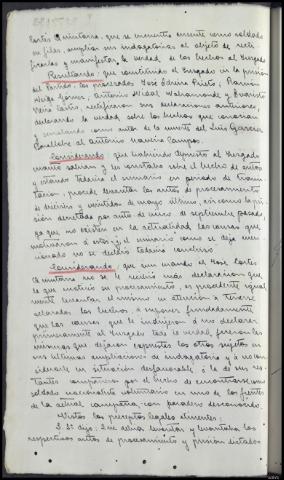 Cortés Quintana, que se encuentra ausente como soldado
en filas, amplían sus indagatorias al objeto de recti-
ficarlas y manifestar la verdad de los hechos al Juzgado
Resultando: que constituido el Juzgado en la prisión
del Partido, los procesados José Prieto, Ramón
Gómez, Antonio Vidal y
rectificaron sus declaraciones anteriores,
declarando la verdad sobre los hechos que conocían
y señalando como autor de la muerte del Luis
Caballero al Antonio Campos.
Considerando que habiendo expuesto al Juzgado
cuanto sabían y les constaba sobre el hecho de autos
y estando todavía el sumario en período de trami-
tación, procede levantar los autos de procesamiento
de y veintidós de mayo último, así como la pri-
sión decretada por auto de uno de septiembre pasado
ya que no existen en la actualidad las causas que
motivaron a estos, y el sumario como se deja men-
cionado no se declaró todavía concluso
Considerando: que aun cuando el José Cortés
Quintana no se le recibió más declaración que
la que motivó su procesamiento, es procedente igual-
mente levantar el mismo en atención a tenerse
aclarados los hechos, a suponer fundadamente
que las causas que le indujeron a no declarar
primeramente al Juzgado toda la verdad, fueron las
mismas que dejaron expuestas los otros sujetos en
sus últimas ampliaciones de indagatoria y a no con-
siderarle en situación desfavorable a la de sus res-
tantes compañeros por el hecho de encontrarse como
soldado nacionalista voluntario en uno de los frentes
de la actual campaña con paradero desconocido.
Vistos los preceptos legales atinentes;
S. Sª dijo: Que debía levantar y levantaba los
respectivos autos de procesamiento y prisión dictados